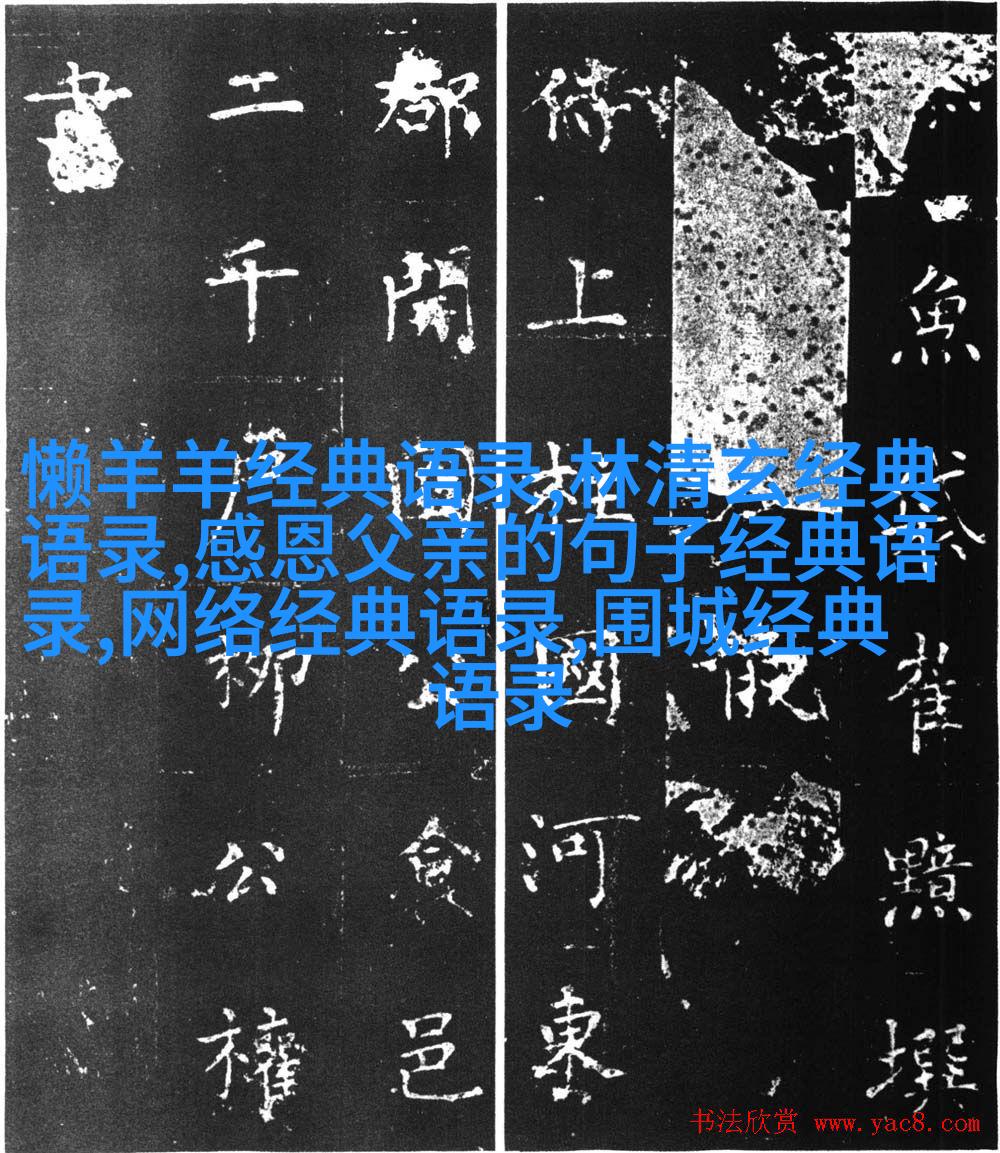 懒羊羊经典语录,林清玄经典
语录,感恩父亲的句子经典语
录,网络经典语录,围城经典
语录
魚袋崔黯撰
侍上柱國河東
郡開國公食邑
二千戶柳公權
書
书法欣赏 www.yac8.com